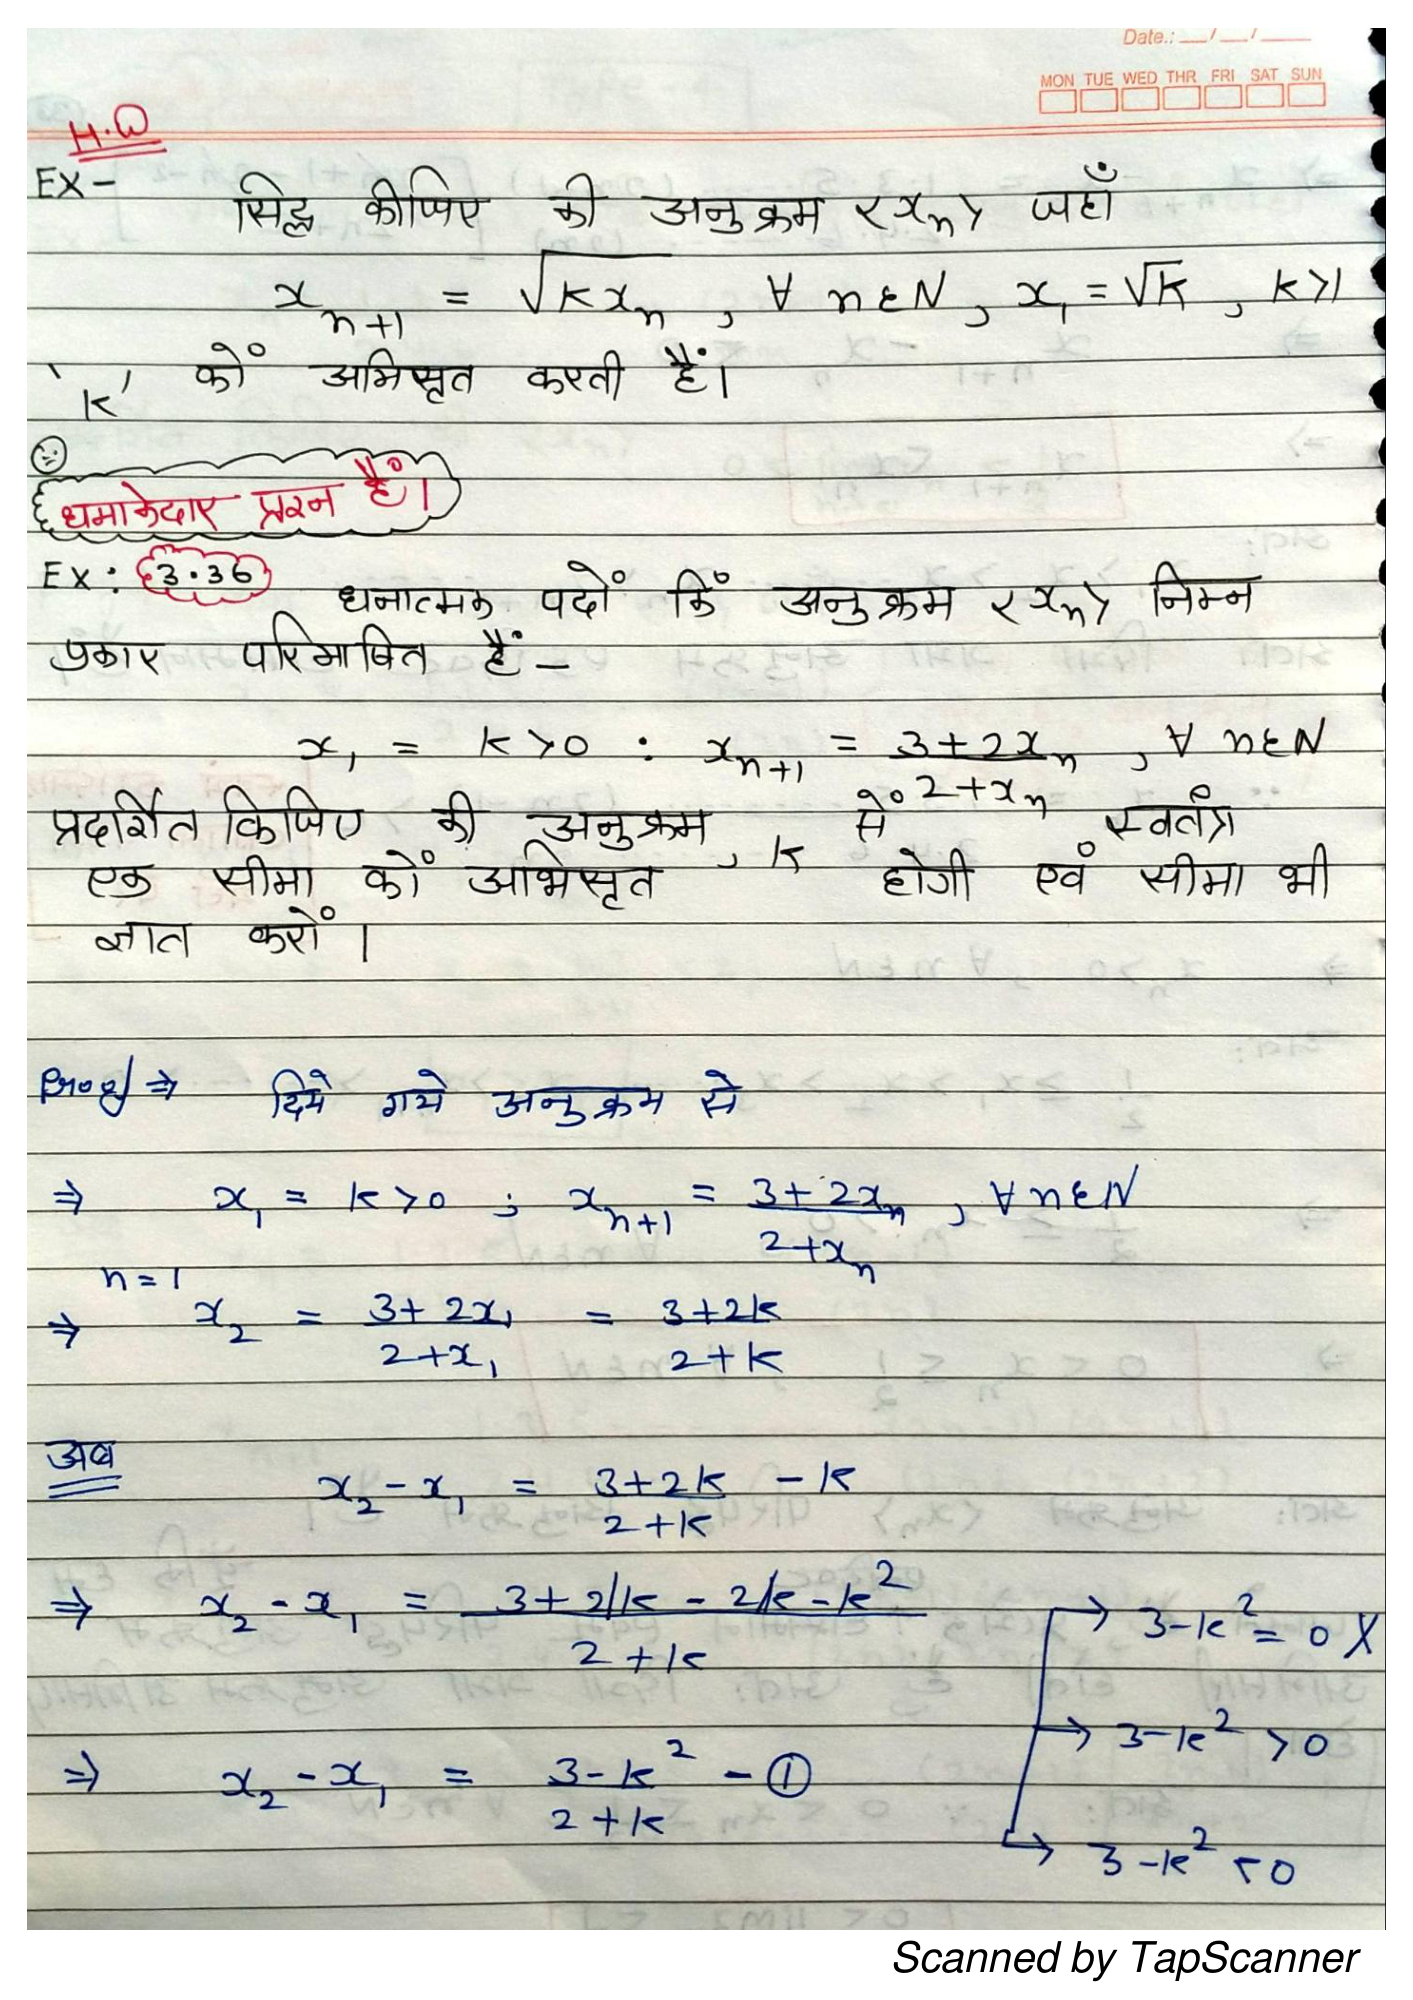 Date.: __/__/____
MON TUE WED THR FRI SAT SUN
H.W
EX- सिद्ध कीजिए की अनुक्रम <xₙ> जहाँ
xₙ₊₁ = √kxₙ , ∀ n∈N , x₁ = √k , k>1
'k' कों अभिसृत करती हैं।
धमाकेदार प्रश्न हैं।
EX: 3.36 धनात्मक पदों किं अनुक्रम <xₙ> निम्न
प्रकार परिभाषित हैं-
x₁ = k>0 : xₙ₊₁ = (3+2xₙ)/(2+xₙ) , ∀ n∈N
प्रदर्शित किजिए की अनुक्रम, k सें स्वतंत्र
एक सीमा कों अभिसृत होगी एवं सीमा भी
ज्ञात करों।
Proof ⇒ दिये गये अनुक्रम से
⇒ x₁ = k>0 ; xₙ₊₁ = (3+2xₙ)/(2+xₙ) , ∀ n∈N
n=1
⇒ x₂ = (3+2x₁)/(2+x₁) = (3+2k)/(2+k)
अब x₂-x₁ = (3+2k)/(2+k) - k
⇒ x₂-x₁ = (3+2k-2k-k²)/(2+k)
→ 3-k² = 0 X
→ 3-k² >0
⇒ x₂-x₁ = (3-k²)/(2+k) - ①
→ 3-k² <0
Scanned by TapScanner